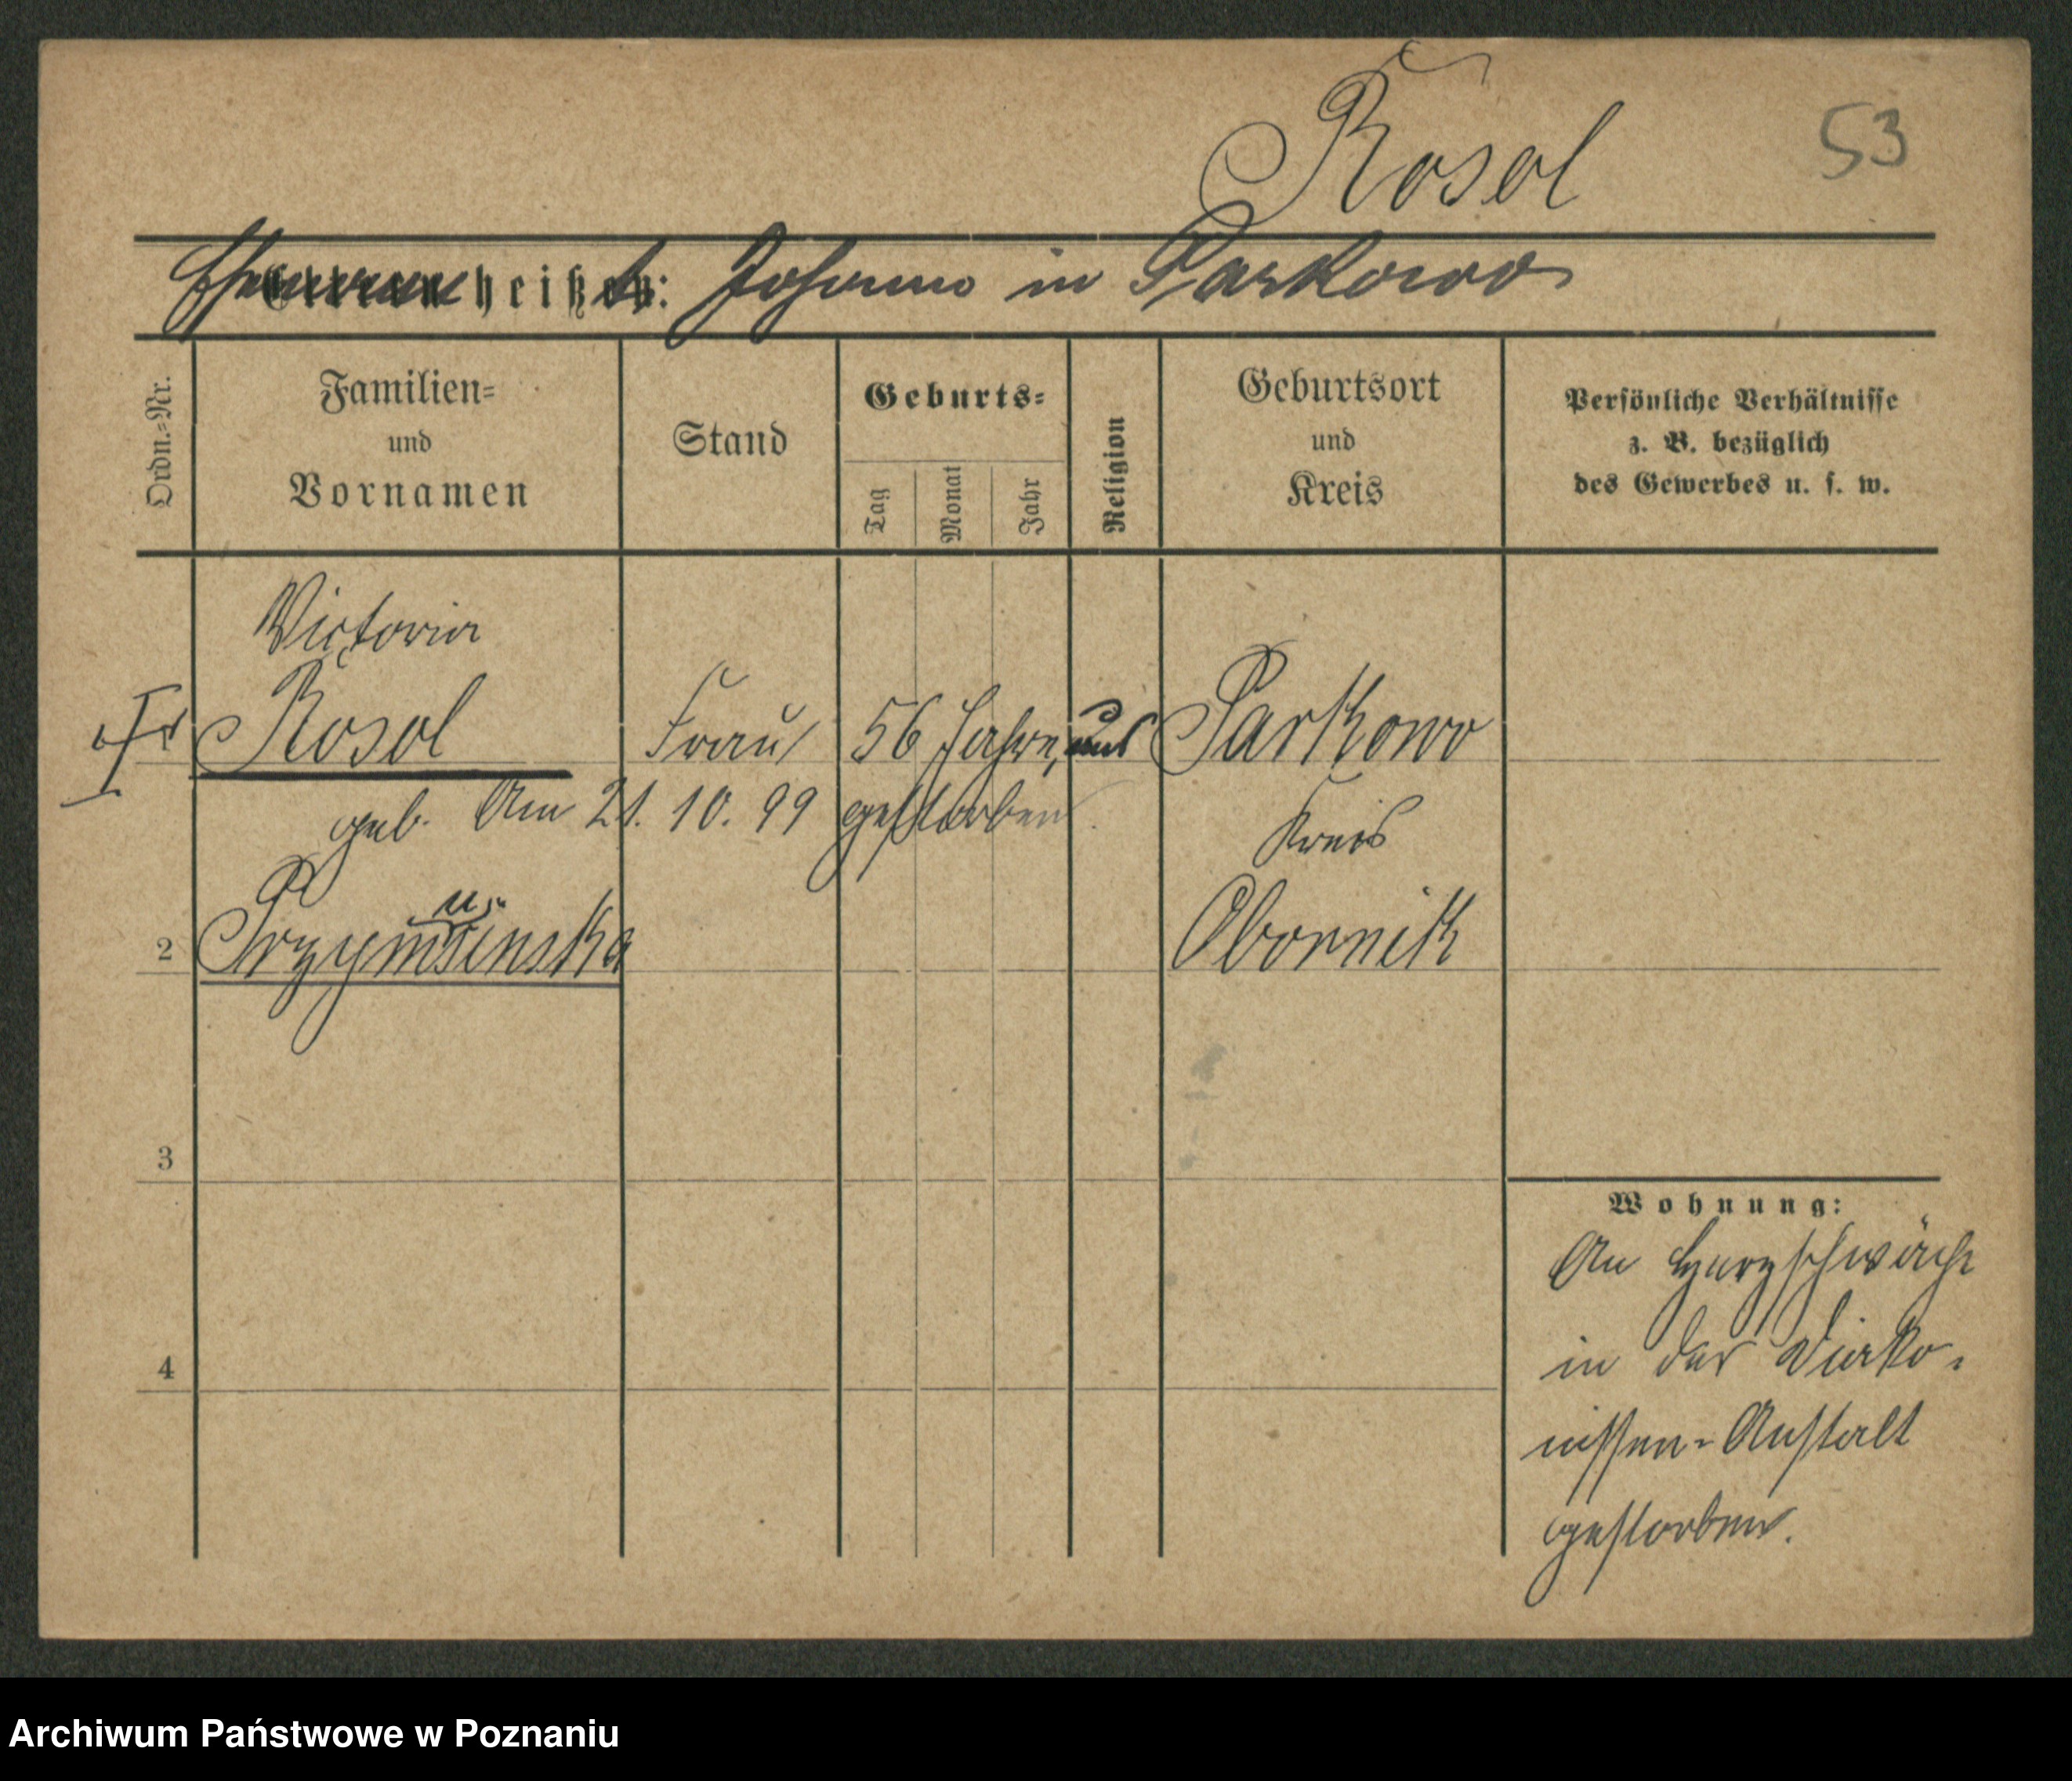 Rosol 53
Ehemann heißt: Johann in Parkowo
Ordn.=Nr.
Familien=
und
Vornamen
Stand
Geburts=
Tag
Monat
Jahr
Religion
Geburtsort
und
Kreis
Persönliche Verhältnisse
z. B. bezüglich
des Gewerbes u. s. w.
Victoria
Rosol Frau 56 Jahre, aus Parkowo
geb. Am 21. 10. 99 gestorben.
Kreis
2 Przymusinska Obornik
3
4
Wohnung:
An Herzschwäche
in der Diako-
nissen-Anstalt
gestorben.
Archiwum Państwowe w Poznaniu